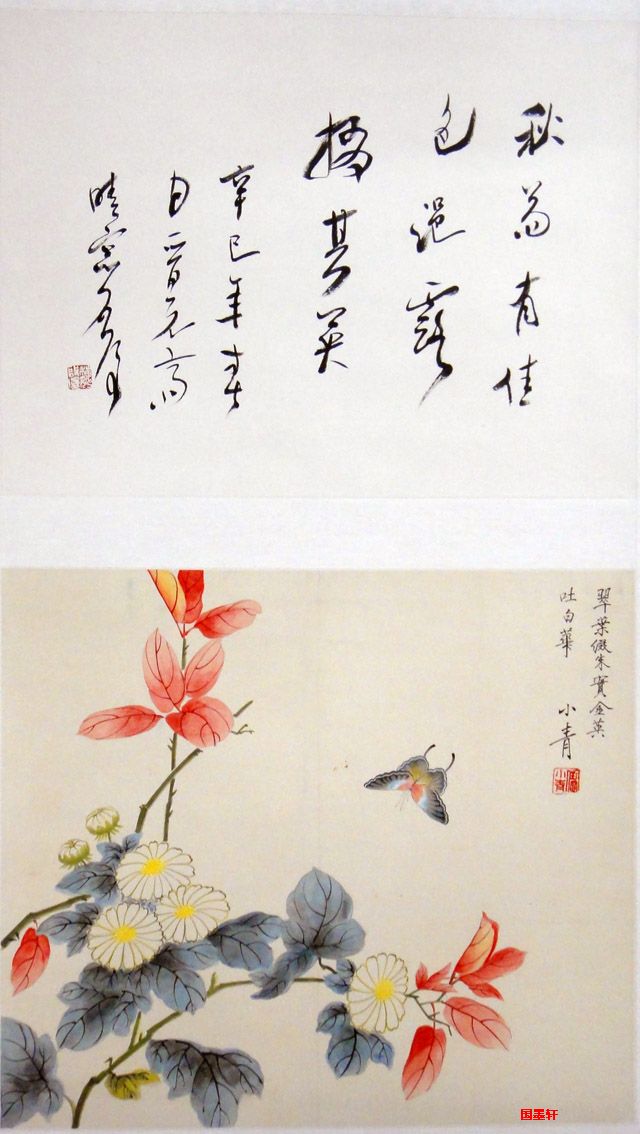 秋菊有佳
色浥露
掇其英
辛巳年春
晴窗
翠葉綴朱實金英
吐白華
小青
国墨轩